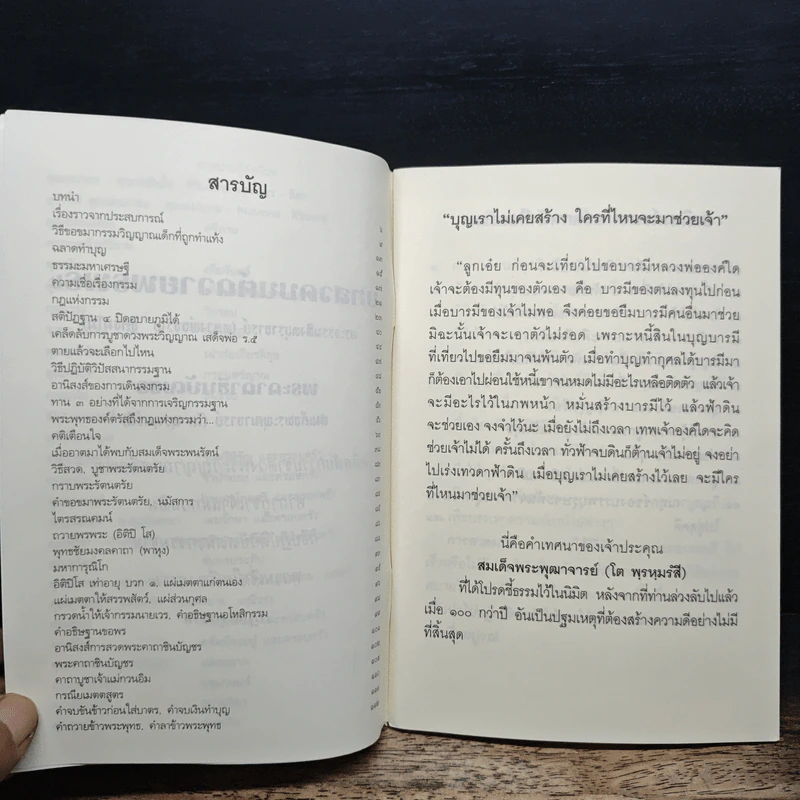 สารบัญ
บทนำ
เรื่องราวจากประสบการณ์
วิธีขอขมากรรมวิญญาณเด็กที่ถูกทำแท้ง
ฉลาดทำบุญ
ธรรมะมหาเศรษฐี
ความเชื่อเรื่องกรรม
กฎแห่งกรรม
สติปัฏฐาน ๔ ปิดอบายภูมิได้
เคล็ดลับการบูชาดวงพระวิญญาณ เสด็จพ่อ ร.๕
ตายแล้วจะเลือกไปไหน
วิธีปฏิบัติวิปัสสนากรรมฐาน
อานิสงส์ของการเดินจงกรม
ทาน ๓ อย่างที่ได้จากการเจริญกรรมฐาน
พระพุทธองค์ตรัสถึงกฎแห่งกรรมว่า...
คติเตือนใจ
เมื่ออาตมาได้พบกับสมเด็จพระพนรัตน์
วิธีสวด, บูชาพระรัตนตรัย
กราบพระรัตนตรัย
คำขอขมาพระรัตนตรัย, นมัสการ
ไตรสรณคมน์
ถวายพรพระ (อิติปิ โส)
พุทธชัยมงคลคาถา (พาหุง)
มหาการุณิโก
อิติปิโส เท่าอายุ บวก ๑, แผ่เมตตาแก่ตนเอง
แผ่เมตตาให้สรรพสัตว์, แผ่ส่วนกุศล
กรวดน้ำให้เจ้ากรรมนายเวร, คำอธิษฐานอโหสิกรรม
คำอธิษฐานขอพร
อานิสงส์การสวดพระคาถาชินบัญชร
พระคาถาชินบัญชร
คาถาบูชาเจ้าแม่กวนอิม
กรณียเมตตสูตร
คำจบขันข้าวก่อนใส่บาตร, คำจบเงินทำบุญ
คำถวายข้าวพระพุทธ, คำลาข้าวพระพุทธ
“บุญเราไม่เคยสร้าง ใครที่ไหนจะมาช่วยเจ้า”
“ลูกเอ๋ย ก่อนจะเที่ยวไปขอบารมีหลวงพ่อองค์ใด
เจ้าจะต้องมีทุนของตัวเอง คือ บารมีของตนลงทุนไปก่อน
เมื่อบารมีของเจ้าไม่พอ จึงค่อยขอยืมบารมีคนอื่นมาช่วย
มิฉะนั้นเจ้าจะเอาตัวไม่รอด เพราะหนี้สินในบุญบารมี
ที่เที่ยวไปขอยืมมาจนพ้นตัว เมื่อทำบุญทำกุศลได้บารมีมา
ก็ต้องเอาไปผ่อนใช้หนี้เขาจนหมดไม่มีอะไรเหลือติดตัว แล้วเจ้า
จะมีอะไรไว้ในภพหน้า หมั่นสร้างบารมีไว้ แล้วฟ้าดิน
จะช่วยเอง จงจำไว้นะ เมื่อยังไม่ถึงเวลา เทพเจ้าองค์ใดจะคิด
ช่วยเจ้าไม่ได้ ครั้นถึงเวลา ทั่วฟ้าจบดินก็ต้านเจ้าไม่อยู่ จงอย่า
ไปเร่งเทวดาฟ้าดิน เมื่อบุญเราไม่เคยสร้างไว้เลย จะมีใคร
ที่ไหนมาช่วยเจ้า”
นี่คือคำเทศนาของเจ้าประคุณ
สมเด็จพระพุฒาจารย์ (โต พฺรหฺมรํสี)
ที่ได้โปรดชี้ธรรมไว้ในนิมิต หลังจากที่ท่านล่วงลับไปแล้ว
เมื่อ ๑๐๐ กว่าปี อันเป็นปฐมเหตุที่ต้องสร้างความดีอย่างไม่มี
ที่สิ้นสุด